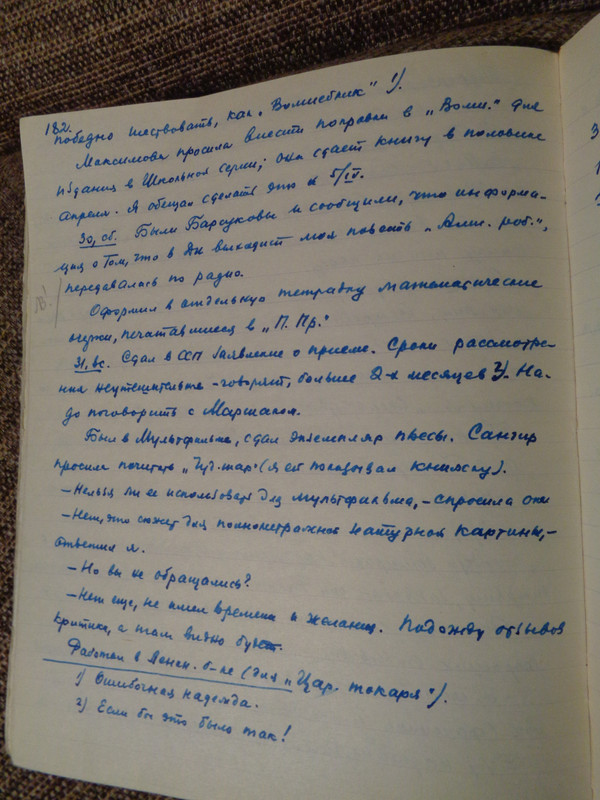 182.
победно шествовать, как „Волшебник" 1).
Максимова просила внести поправки в „Волш." для
издания в Школьной серии; она сдает книгу в половине
апреля. Я обещал сделать это к 5/IV.
30, сб. Были Барсуковы и сообщили, что информа-
ция о том, что в ДК выходит моя повесть „Алт. роб.",
передавалась по радио.
Оформил в отдельную тетрадку математические
шутки, печатавшиеся в „П. Пр."
31, вс. Сдал в ССП заявление о приеме. Сроки рассмотре-
ния неутешительные - говорят, больше 2-х месяцев 2). На-
до поговорить с Маршаком.
Был в Мультфильме, сдал экземпляр пьесы. Сангир
просила почитать „Цар. ток." (я ей показывал книжку).
- Нельзя ли ее использовать для мультфильма, - спросила она
- Нет, это сюжет для полнометражной натурной картины, -
ответил я.
- Но вы не обращались?
- Нет еще, не имел времени и желания. Подожду отзывов
критики, а там видно будет.
Работал в Ленин. б-ке (для „Цар. токаря").
1) Ошибочная надежда.
2) Если бы это было так!